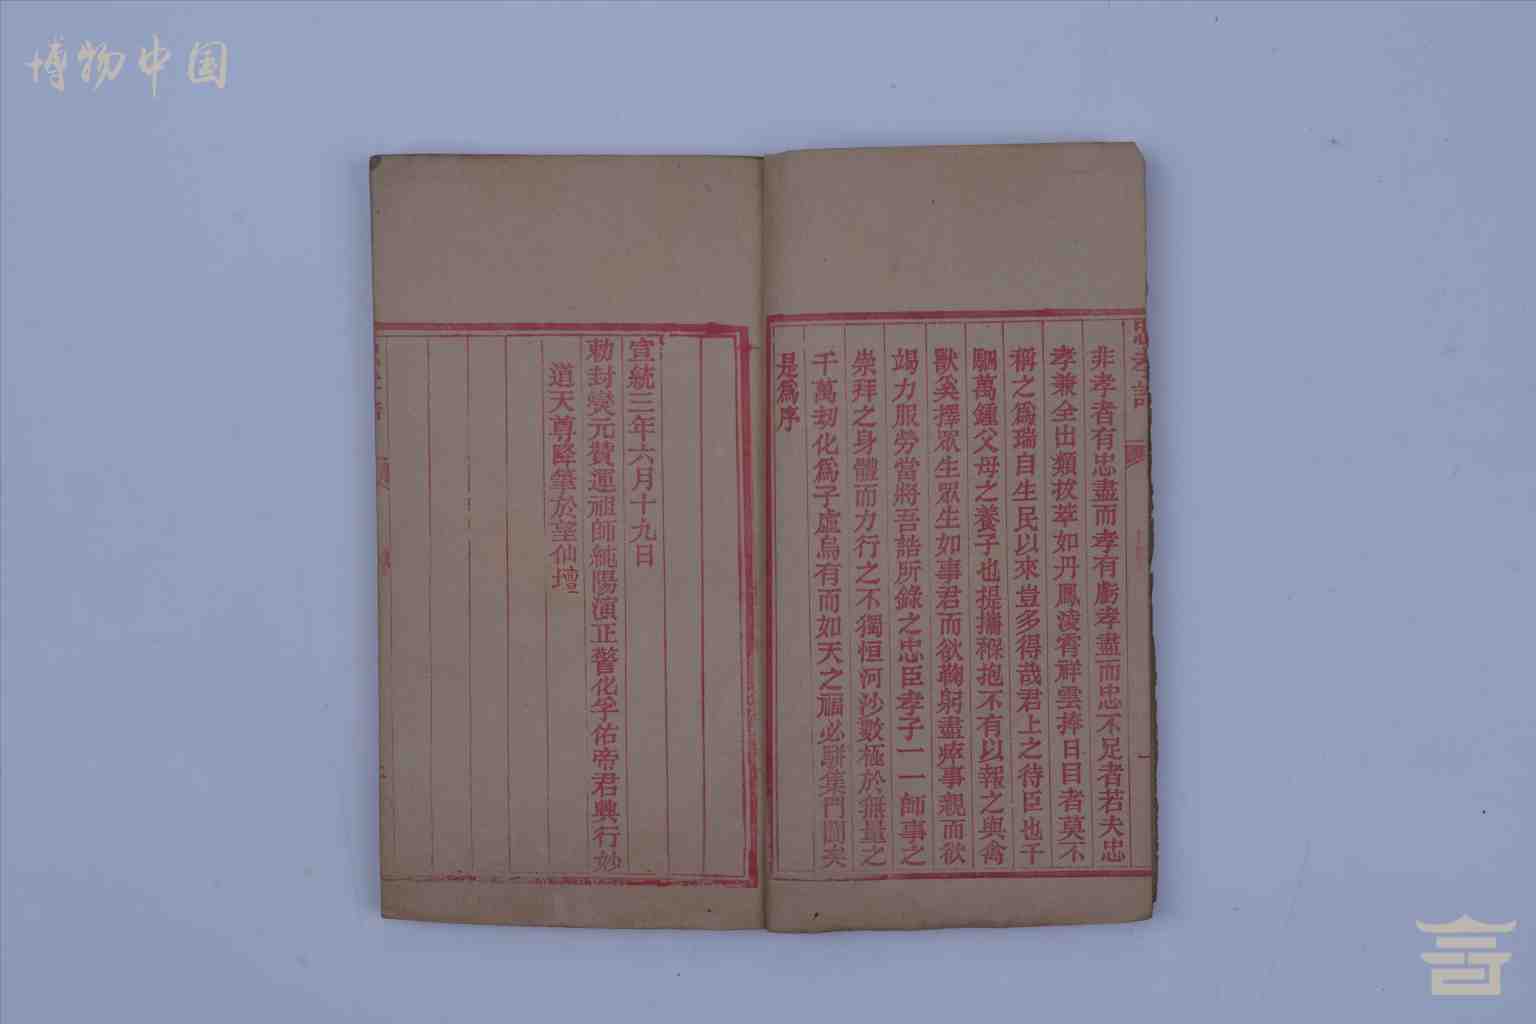 博物中国
忠孝誥
非孝者有忠盡而孝有虧孝盡而忠不足者若夫忠
孝兼全出類拔萃如丹鳳凌霄祥雲捧日目者莫不
稱之為瑞自生民以來豈多得哉君上之待臣也千
駟萬鍾父母之養子也提攜褓抱不有以報之與禽
獸奚擇眾生眾生如事君而欲鞠躬盡瘁事親而欲
竭力服勞當將吾誥所錄之忠臣孝子一一師事之
崇拜之身體而力行之不獨恒河沙數極於無量之
千萬劫化為子虛烏有而如天之福必駢集門閭矣
是為序
宣統三年六月十九日
勅封燮元贊運祖師純陽演正警化孚佑帝君興行妙
道天尊降筆於望仙壇